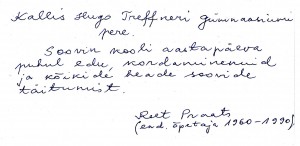 Kallis Hugo Treffneri gümnaasiumi
pere.
Soovin kooli aastapäeva
puhul edu, kordaminenuid
ja kõikide heade soovide
täitumist.
Reet Praats
(end. õpetaja 1960-1990)